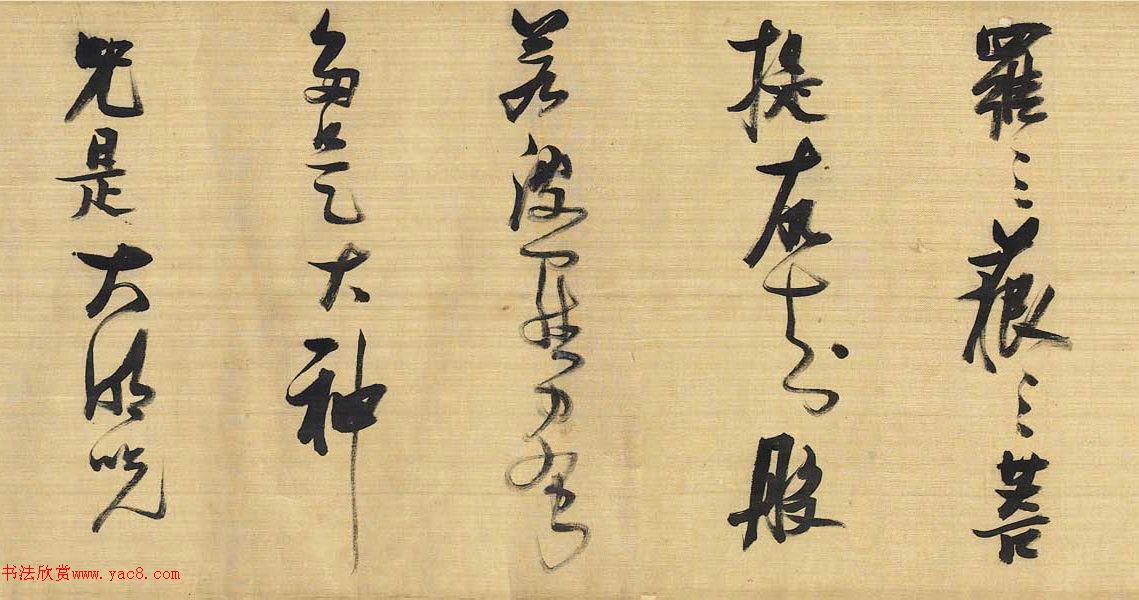 羅三藐三菩
提故知般
若波羅蜜
多是大神
咒是大明咒
书法欣赏www.yac8.com